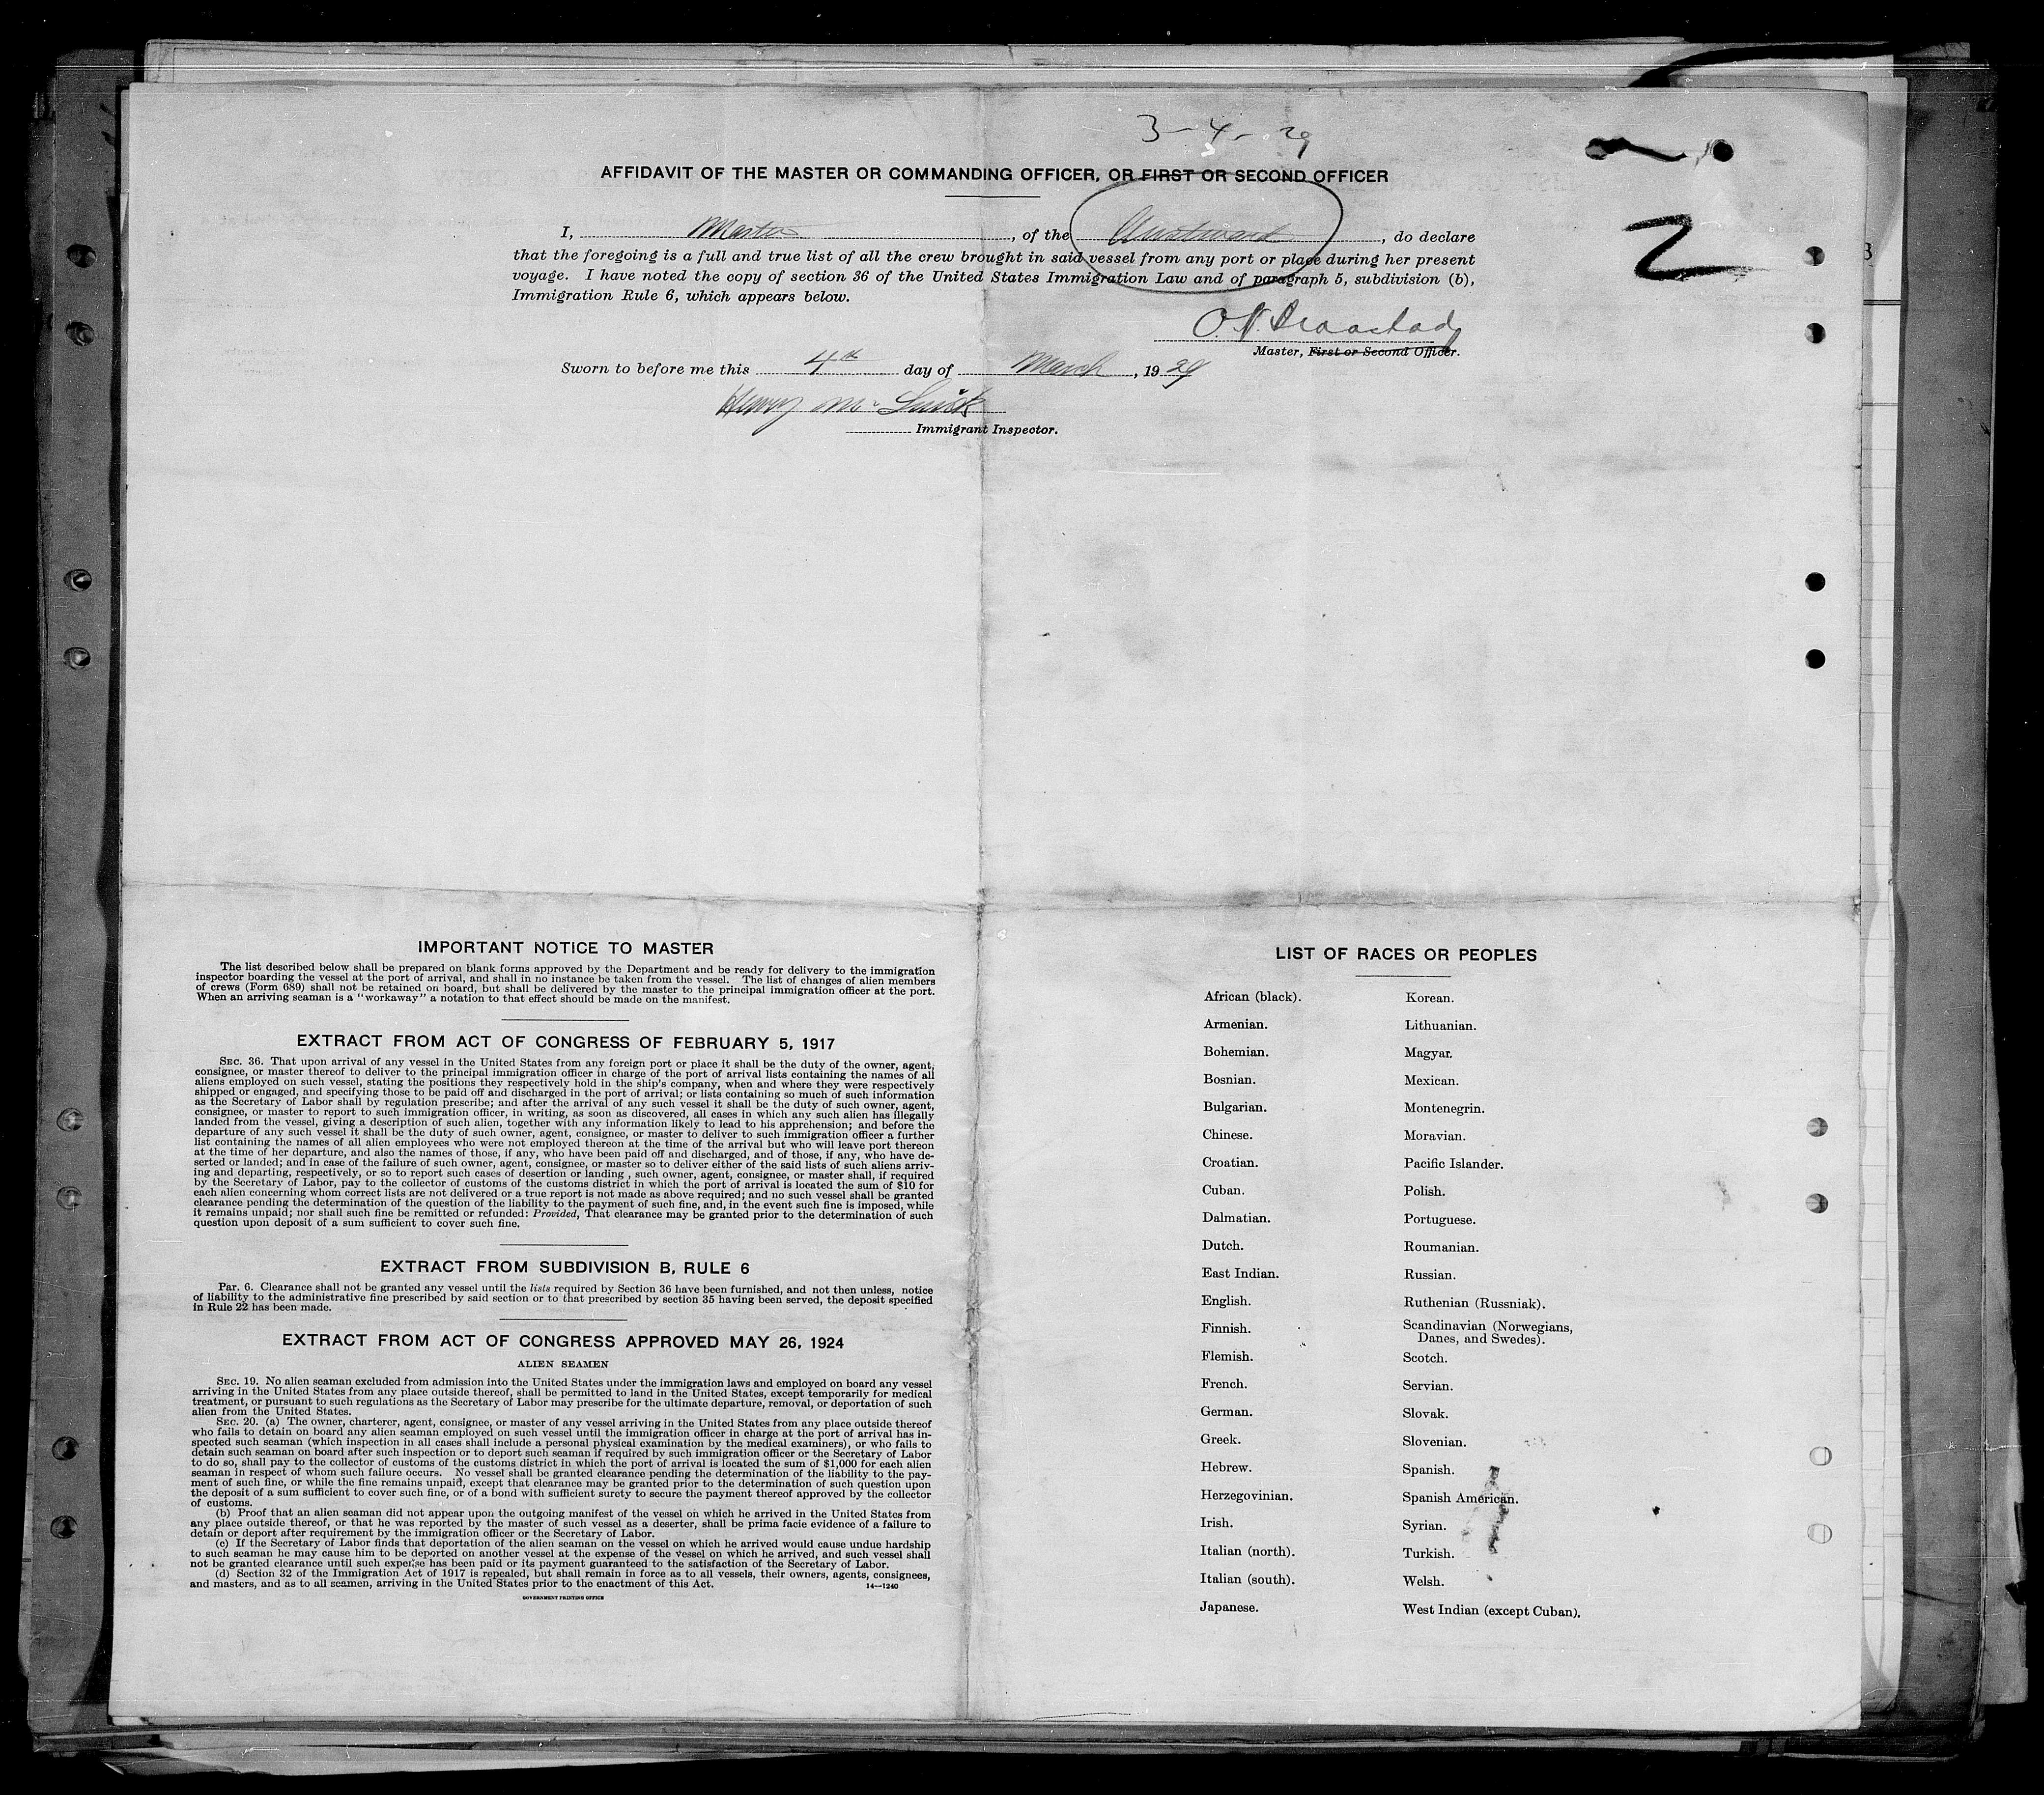 3-4-29
AFFIDAVIT OF THE MASTER OR COMMANDING OFFICER, OR FIRST OR SECOND OFFICER
2
I, Master, of the, do declare
that the foregoing is a full and true list of all the crew brought in said vessel from any port or place during her present
voyage. I have noted the copy of section 36 of the United States Immigration Law and of paragraph 5, subdivision (b),
Immigration Rule 6, which appears below.
Master, First or Second Officer.
Sworn to before me this 4th day of March, 1929
Henry
Immigrant Inspector.
IMPORTANT NOTICE TO MASTER
The list described below shall be prepared on blank forms approved by the Department and be ready for delivery to the immigration
inspector boarding the vessel at the port of arrival, and shall in no instance be taken from the vessel. The list of changes of alien members
of crews (Form 689) shall not be retained on board, but shall be delivered by the master to the principal immigration officer at the port.
When an arriving seaman is a "workaway" a notation to that effect should be made on the manifest.
EXTRACT FROM ACT OF CONGRESS OF FEBRUARY 5, 1917
SEC. 36. That upon arrival of any vessel in the United States from any foreign port or place it shall be the duty of the owner, agent,
consignee, or master thereof to deliver to the principal immigration officer in charge of the port of arrival lists containing the names of all
aliens employed on such vessel, stating the positions they respectively hold in the ship's company, when and where they were respectively
shipped or engaged, and specifying those to be paid off and discharged in the port of arrival; or lists containing so much of such information
as the Secretary of Labor shall by regulation prescribe; and after the arrival of any such vessel it shall be the duty of such owner, agent,
consignee, or master to report to such immigration officer, in writing, as soon as discovered, all cases in which any such alien has illegally
landed from the vessel, giving a description of such alien, together with any information likely to lead to his apprehension; and before the
departure of any such vessel it shall be the duty of such owner, agent, consignee, or master to deliver to such immigration officer a further
list containing the names of all alien employees who were not employed thereon at the time of the arrival but who will leave port thereon
at the time of her departure, and also the names of those, if any, who have been paid off and discharged, and of those, if any, who have de-
serted or landed; and in case of the failure of such owner, agent, consignee, or master so to deliver either of the said lists of such aliens arriv-
ing and departing, respectively, or so to report such cases of desertion or landing , such owner, agent, consignee, or master shall, if required
by the Secretary of Labor, pay to the collector of customs of the customs district in which the port of arrival is located the sum of $10 for
each alien concerning whom correct lists are not delivered or a true report is not made as above required; and no such vessel shall be granted
clearance pending the determination of the question of the liability to the payment of such fine, and, in the event such fine is imposed, while
it remains unpaid; nor shall such fine be remitted or refunded: Provided, That clearance may be granted prior to the determination of such
question upon deposit of a sum sufficient to cover such fine.
EXTRACT FROM SUBDIVISION B, RULE 6
Par. 6. Clearance shall not be granted any vessel until the lists required by Section 36 have been furnished, and not then unless, notice
of liability to the administrative fine prescribed by said section or to that prescribed by section 35 having been served, the deposit specified
in Rule 22 has been made.
EXTRACT FROM ACT OF CONGRESS APPROVED MAY 26, 1924
ALIEN SEAMEN
SEC. 19. No alien seaman excluded from admission into the United States under the immigration laws and employed on board any vessel
arriving in the United States from any place outside thereof, shall be permitted to land in the United States, except temporarily for medical
treatment, or pursuant to such regulations as the Secretary of Labor may prescribe for the ultimate departure, removal, or deportation of such
alien from the United States.
SEC. 20. (a) The owner, charterer, agent, consignee, or master of any vessel arriving in the United States from any place outside thereof
who fails to detain on board any alien seaman employed on such vessel until the immigration officer in charge at the port of arrival has in-
spected such seaman (which inspection in all cases shall include a personal physical examination by the medical examiners), or who fails to
detain such seaman on board after such inspection or to deport such seaman if required by such immigration officer or the Secretary of Labor
to do so, shall pay to the collector of customs of the customs district in which the port of arrival is located the sum of $1,000 for each alien
seaman in respect of whom such failure occurs. No vessel shall be granted clearance pending the determination of the liability to the pay-
ment of such fine, or while the fine remains unpaid, except that clearance may be granted prior to the determination of such question upon
the deposit of a sum sufficient to cover such fine, or of a bond with sufficient surety to secure the payment thereof approved by the collector
of customs.
(b) Proof that an alien seaman did not appear upon the outgoing manifest of the vessel on which he arrived in the United States from
any place outside thereof, or that he was reported by the master of such vessel as a deserter, shall be prima facie evidence of a failure to
detain or deport after requirement by the immigration officer or the Secretary of Labor.
(c) If the Secretary of Labor finds that deportation of the alien seaman on the vessel on which he arrived would cause undue hardship
to such seaman he may cause him to be deported on another vessel at the expense of the vessel on which he arrived, and such vessel shall
not be granted clearance until such expense has been paid or its payment guaranteed to the satisfaction of the Secretary of Labor.
(d) Section 32 of the Immigration Act of 1917 is repealed, but shall remain in force as to all vessels, their owners, agents, consignees,
and masters, and as to all seamen, arriving in the United States prior to the enactment of this Act.
14—1240
GOVERNMENT PRINTING OFFICE
LIST OF RACES OR PEOPLES
African (black).
Armenian.
Bohemian.
Bosnian.
Bulgarian.
Chinese.
Croatian.
Cuban.
Dalmatian.
Dutch.
East Indian.
English.
Finnish.
Flemish.
French.
German.
Greek.
Hebrew.
Herzegovinian.
Irish.
Italian (north).
Italian (south).
Japanese.
Korean.
Lithuanian.
Magyar.
Mexican.
Montenegrin.
Moravian.
Pacific Islander.
Polish.
Portuguese.
Roumanian.
Russian.
Ruthenian (Russniak).
Scandinavian (Norwegians,
Danes, and Swedes).
Scotch.
Servian.
Slovak.
Slovenian.
Spanish.
Spanish American.
Syrian.
Turkish.
Welsh.
West Indian (except Cuban).